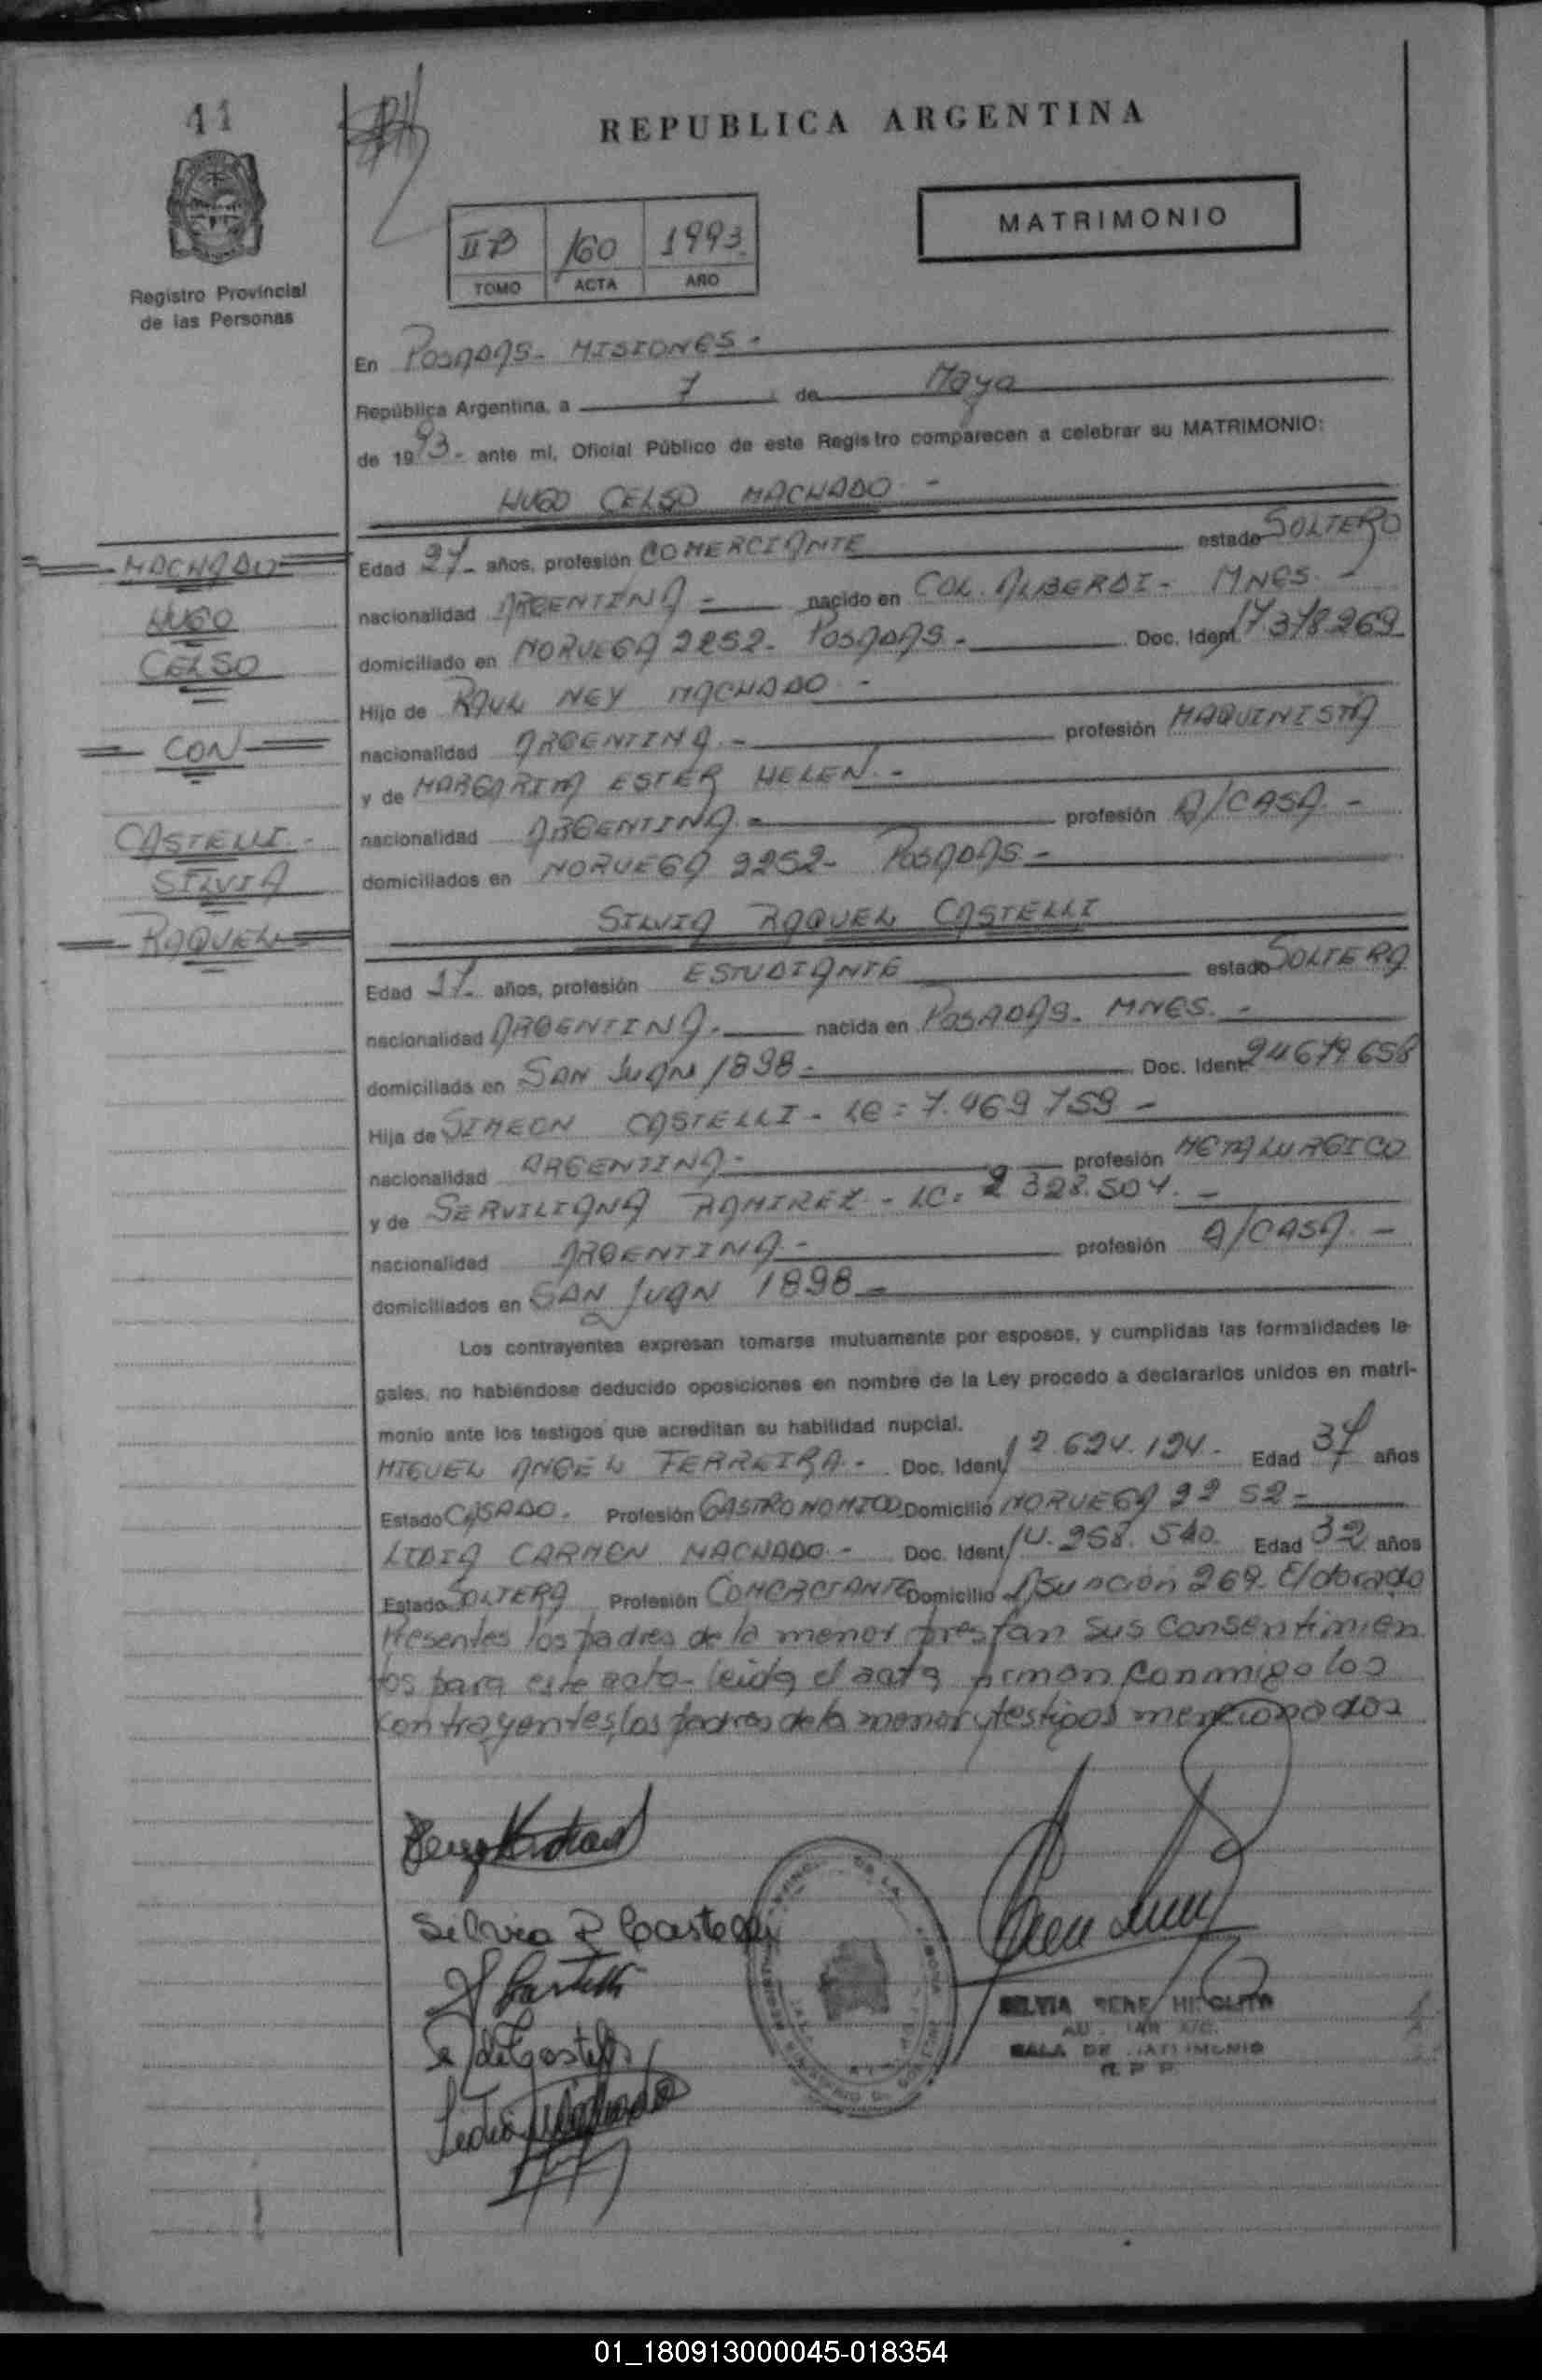 41
REPUBLICA ARGENTINA
MATRIMONIO
II B 160 1993
TOMO ACTA AÑO
Registro Provincial
de las Personas
En POSADAS - MISIONES -
República Argentina, a 7 de Mayo
de 1993 - ante mi, Oficial Público de este Registro comparecen a celebrar su MATRIMONIO:
HUGO CELSO MACHADO -
MACHADO
HUGO
CELSO
CON
CASTELLI -
SILVIA
RAQUEL
Edad 27 - años, profesión COMERCIANTE estado SOLTERO
nacionalidad ARGENTINA - nacido en COL. ALBERDI - MNES. -
domiciliado en NORUEGA 2252 - POSADAS - Doc. Ident. 17378269
Hijo de RAUL NEY MACHADO -
nacionalidad ARGENTINA - profesión MAQUINISTA
y de MARGARITA ESTER HELEN. -
nacionalidad ARGENTINA - profesión A/CASA. -
domiciliados en NORUEGA 2252 - POSADAS -
SILVIA RAQUEL CASTELLI
Edad 17 - años, profesión ESTUDIANTE estado SOLTERA
nacionalidad ARGENTINA. nacida en POSADAS - MNES. -
domiciliada en SAN JUAN 1898 - Doc. Ident. 24679658
Hija de SIMEON CASTELLI - LE: 7.469759 -
nacionalidad ARGENTINA - profesión METALURGICO
y de SERVILIANA RAMIREZ - LC: 2328.504. -
nacionalidad ARGENTINA - profesión A/CASA. -
domiciliados en SAN JUAN 1898 -
Los contrayentes expresan tomarse mutuamente por esposos, y cumplidas las formalidades le-
gales, no habiéndose deducido oposiciones en nombre de la Ley procedo a declararlos unidos en matri-
monio ante los testigos que acreditan su habilidad nupcial.
MIGUEL ANGEL FERREIRA - Doc. Ident. 12.624.124 - Edad 37 años
Estado CASADO. Profesión GASTRONOMICO Domicilio NORUEGA 2252 -
LIDIA CARMEN MACHADO - Doc. Ident. 14.258.540. Edad 32 años
Estado SOLTERA Profesión COMERCIANTE Domicilio Asunción 269 - Eldorado
Presentes los padres de la menor prestan sus consentimien
tos para este acto - leida el acta firman conmigo los
contrayentes, los padres de la menor y testigos mencionados
Silvia R Castelli
SALA DE MATRIMONIO
R. P. P.
01_180913000045-018354